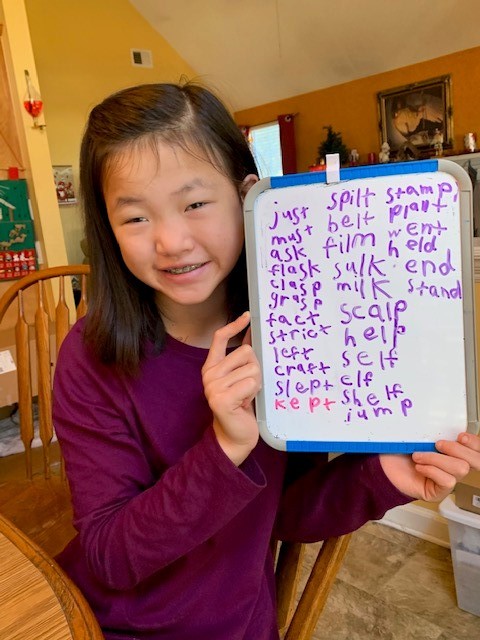 just
must
ask
flask
clasp
grasp
fact
strict
left
craft
slept
kept
spilt
belt
film
sulk
milk
scalp
help
self
elf
shelf
jump
stamp
plant
went
held
end
stand